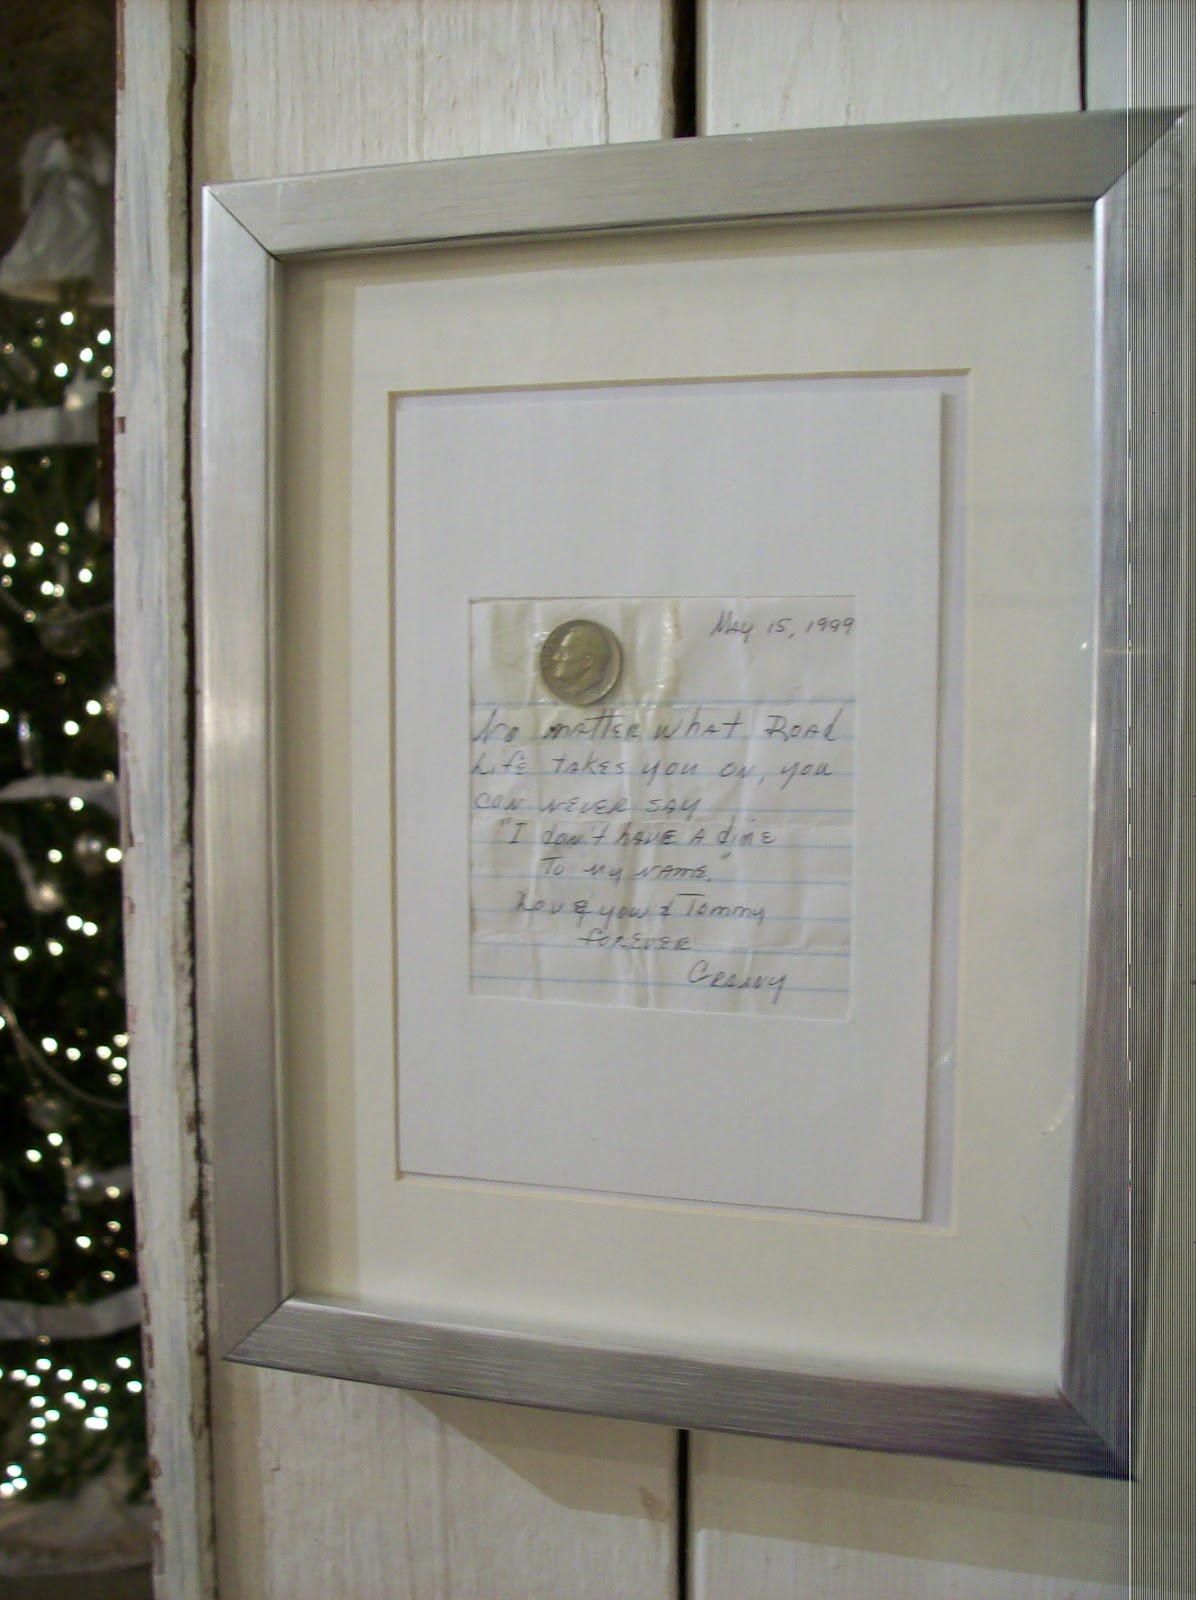 May 15, 1999
No matter what Road
Life takes you on, you
can never say
"I don't have a dime
To my name."
Love you & Tommy
forever
Granny